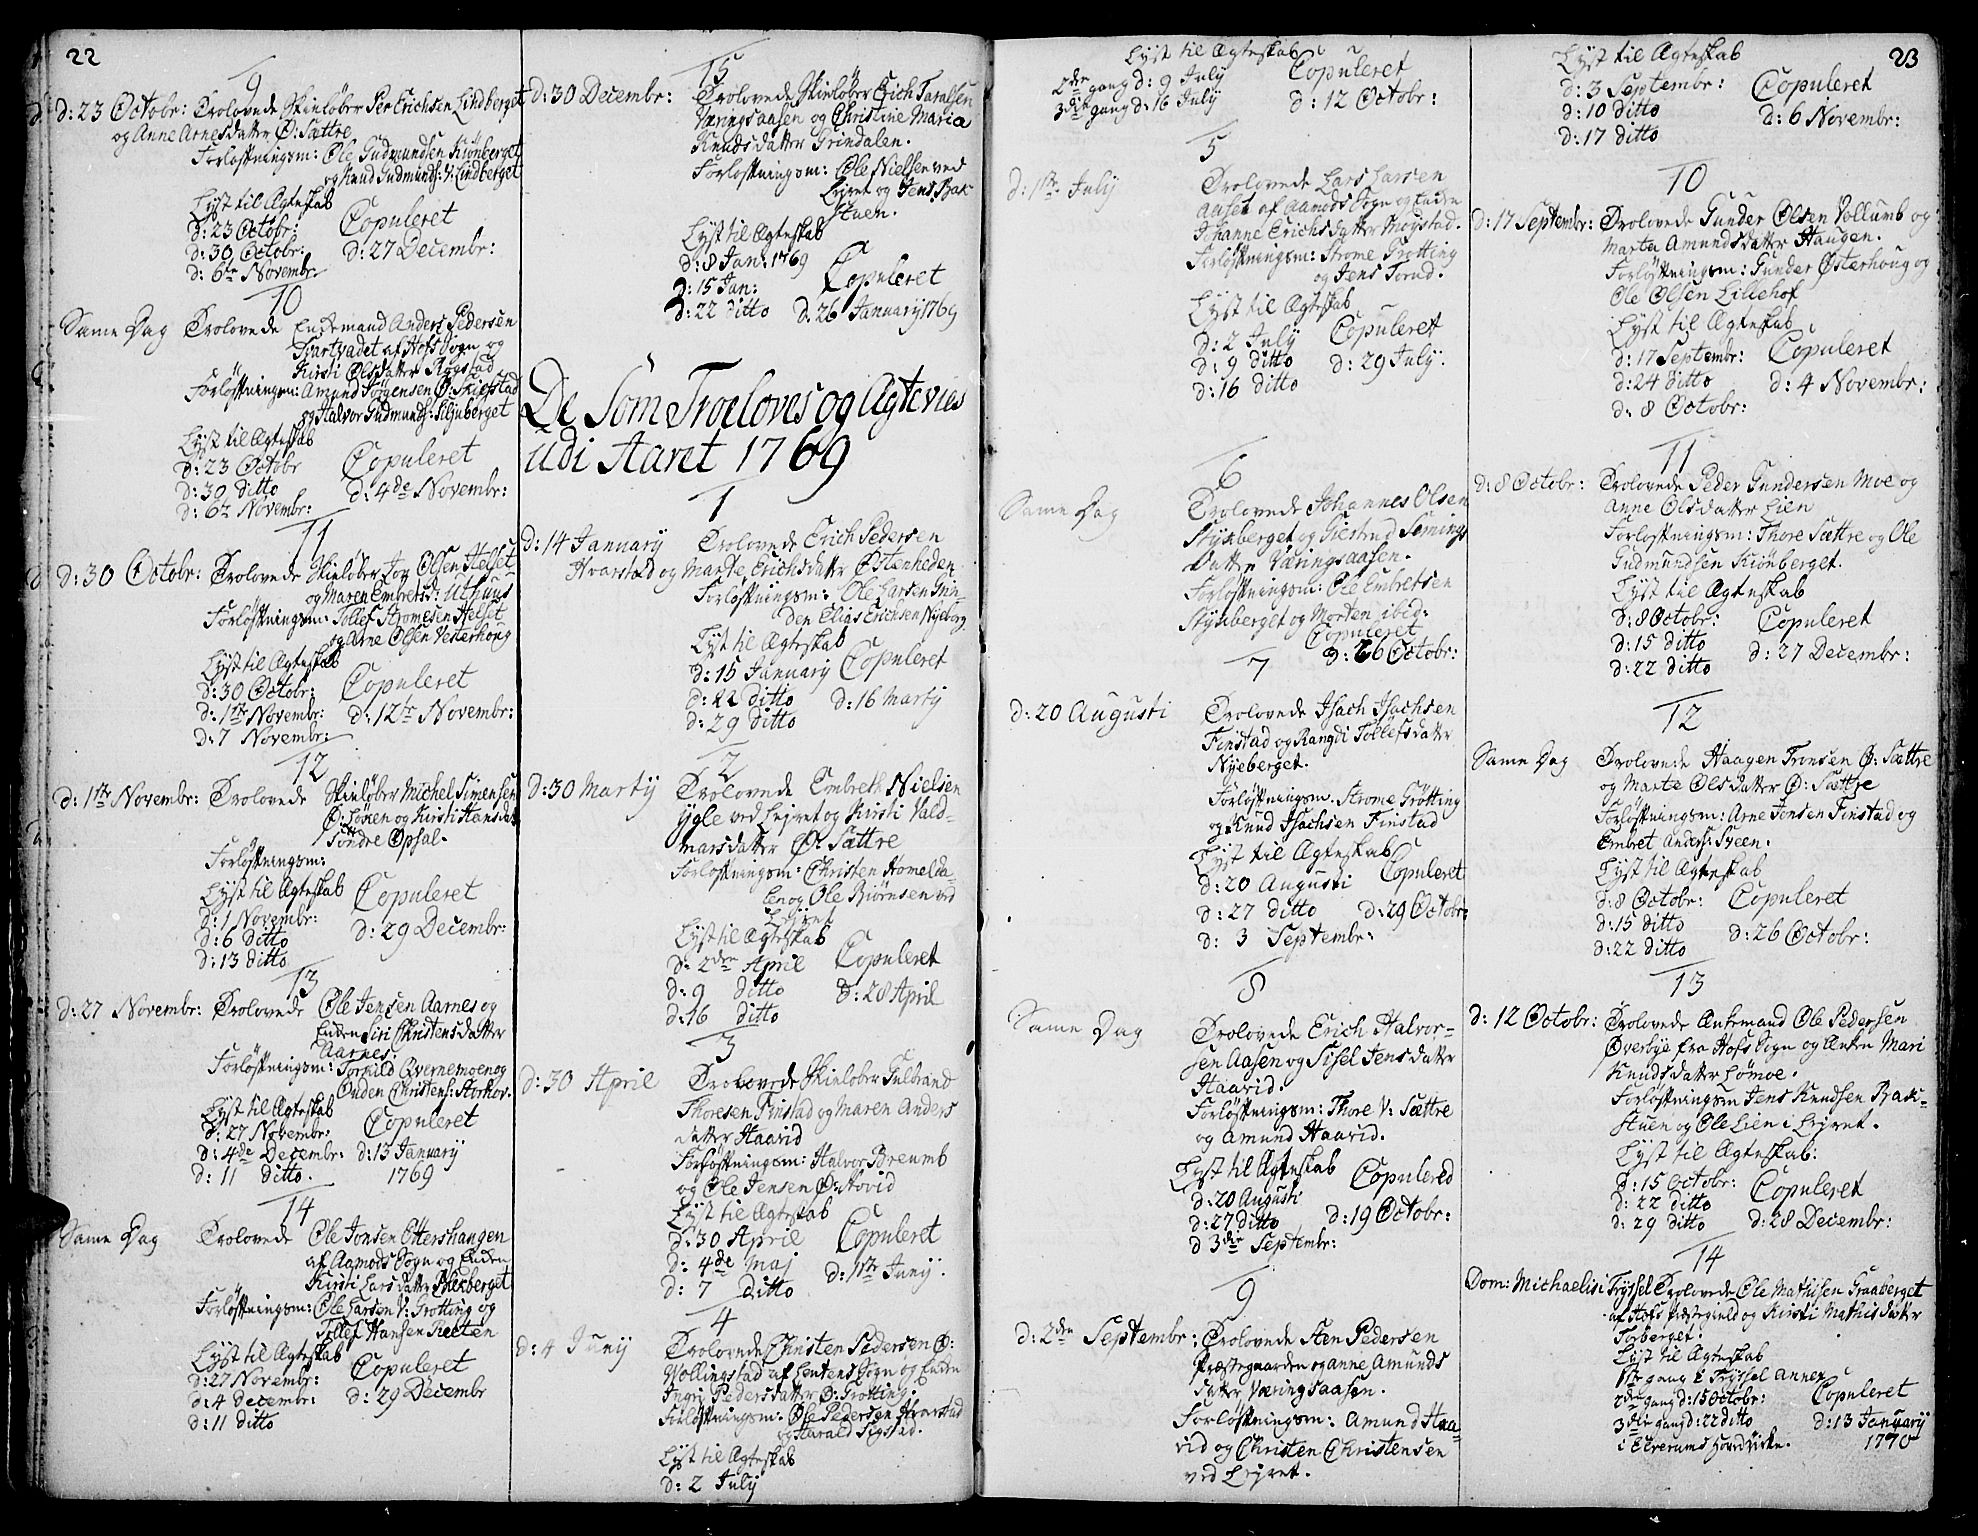 22
9
d: 23 Octobr: Trolovede Skieløber Per Erichsen Lindberget
og Anne Arnesdatter Ø: Sættre
Forløftningsm: Ole Gudmundsen Kiønberget
og Knud Gudmunds: V: Lindberget
Lyst til Ægteskab
d: 23 Octobr: Copuleret
d: 30 Octobr: d: 27 Decembr:
d: 6te Novembr:
10
Same Dag Trolovede Enckemand Anders Pedersen
Svartvadet af Hofs Sogn og
Kirsti Olsdatter Rogstad
Forløftningsm: Amund Jørgensen Ø: Skiefstad
og Halvor Gudmunds: Siljuberget
Lyst til Ægteskab
d: 23 Octobr Copuleret
d: 30 ditto d: 4de Novembr:
d: 6te Novembr:
11
d: 30 Octobr: Trolovede Skieløber Jog Olsen Helset
og Maren Embretsd: Uthuus
Forløftningsm: Tollef Stromesen Helset
og Arne Olsen Vesterhoug
Lyst til Ægteskab
d: 30 Octobr: Copuleret
d: 1ste Novembr: d: 12te Novembr:
d: 7 Novembr:
12
d: 1ste Novembr: Trolovede Skieløber Michel Simensen
Ø: Løken og Kirsti Hansdat
Søndre Opsal.
Forløftningsm:
Lyst til Ægteskab Copuleret
d: 1 Novembr:
d: 6 ditto d: 29 Decembr:
d: 13 ditto
13
d: 27 Novembr: Trolovede Ole Jensen Aarnes og
Enken Siri Christensdatter
Aarnes.
Forløftningsm: Torkild Qvernemoen og
Ouden Christens: Storhov.
Lyst til Ægteskab
d: 27 Novembr: Copuleret
d: 4de Decembr: d: 13 January
d: 11 ditto. 1769
14
Same Dag Trolovede Ole Jonsen Ottershaugen
af Aamods Sogn og Enken
Kirsti Larsdatter Ekeberget
Forløftningsm: Ole Larsen V: Grøtting og
Tollef Hansen Reeten
Lyst til Ægteskab
d: 27 Novembr: Copuleret
d: 4 Decembr: d: 29 Decembr
d: 11 ditto
15
d: 30 Decembr: Trolovede Skieløber Erich Taralsen
Væringsaasen og Christine Maria
Knudsdatter Grindalen.
Forløftningsm: Ole Nielsen ved
Lejret og Jens Bak-
stuen.
Lyst til Ægteskab
d: 8 Jan: 1769
d: 15 Jan: Copuleret
d: 22 ditto d. 26 January 1769
De Som Troeloves og Ægtevies
udi Aaret 1769
1
d: 14 January Trolovede Erich Pedersen
Hvarstad og Marte Erichsdatter Østenheden
Forløftningsm: Ole Larsen Mu-
den Elias Erichsen Nyeborg
Lyst til Ægteskab
d: 15 January Copuleret
d: 22 ditto d: 16 Martij
d: 29 ditto
2
d: 30 Martij Trolovede Embreth Nielsen
Ygle ved Lejret og Kirsti Vald-
marsdatter Ø: Sættre
Forløftningsm: Christen Homelda-
len og Ole Biørnsen ved
Lejret
Lyst til Ægteskab
d: 2den April Copuleret
d: 9 ditto d: 28 April
d: 16 ditto
3
d: 30 April Trolovede Skieløber Gulbrand
Thoresen Finstad og Maren Anders
datter Haarid
Forløftningsm: Halvor Breumb
og Ole Jensen Ø: Hovid
Lyst til Ægteskab
d: 30 April Copuleret
d: 4de Maj
d: 7 ditto d: 1ste Junij.
4
d: 4 Junij Trolovede Christen Pedersen Ø:
Vollingstad af Løutens Sogn og Enken
Ingri Pedersdatter Ø: Grøtting.
Forløftningsm: Ole Pedersen Hvarstad
og Harald Sigstad.
Lyst til Ægteskab
d: 2 July
Lyst til Ægteskab
2de gang d: 9 July Copuleret
3die gang d: 16 July d: 12 Octobr:
5
d: 1ste July Trolovede Lars Larsen
Aaset af Aamods Sogn og Enken
Johanne Erichsdatter Mogstad.
Forløftningsm: Strome Grøtting
og Jens Torud.
Lyst til Ægteskab
d: 2 July Copuleret
d: 9 ditto d: 29 July.
d: 16 ditto
6
Same Dag Trolovede Johannes Olsen
Stynberget og Giertrud Semings
datter Væringsaasen.
Forløftningsm: Ole Embretsen
Stynberget og Morten ibid:
Copuleret
d: 26 Octobr:
7
d: 20 Augusti Trolovede Isach Isachsen
Finstad og Rangdi Tollefsdatter
Nyeberget.
Forløftningsm. Strome Grøtting
og Knud Isachsen Finstad
Lyst til Ægteskab
d: 20 Augusti Copuleret
d: 27 ditto d: 29 Octobr:
d: 3 Septembr:
8
Same Dag Trolovede Erich Halvor-
sen Aasen og Sisel Jensdatter
Haarid.
Forløftningsm: Thore V: Sættre
og Amund Haarid.
Lyst til Ægteskab Copulered
d: 20 Augusti
d: 27 ditto d: 19 Octobr:
d 3die Septembr:
9
d: 2den Septembr: Trolovede Sten Pedersen
Præstegaarden og Anne Amunds
datter Væringsaasen.
Forløftningsm: Amund Haa-
vid og Christen Christensen
ved Lejret.
23
Lyst til Ægteskab
d: 3 Septembr: Copuleret
d: 10 ditto d: 6 Novembr:
d: 17 ditto
10
d: 17 Septembr: Trolovede Gunder Olsen Vollumb og
Marta Amundsdatter Haugen.
Forløftningsm: Gunder Østerhoug og
Ole Olsen Lillehof
Lyst til Ægteskab
d: 17 Septembr: Copuleret
d: 24 ditto d: 4 Novembr:
d: 8 Octobr:
11
d: 8 Octobr: Trolovede Peder Gundersen Moe og
Anne Olsdatter Lien
Forløftningsm: Thore Sættre og Ole
Gudmundsen Kiønberget.
Lyst til Ægteskab
d: 8 Octobr: Copuleret
d: 15 ditto d: 27 Decembr:
d: 22 ditto
12
Same Dag Trolovede Haagen Tronsen Ø: Sættre
og Marte Olsdatter Ø: Sættre
Forløftningsm: Arne Jonsen Finstad og
Embret Anders: Sveen.
Lyst til Ægteskab
d: 8 Octobr: Copuleret
d: 15 ditto d: 26 Octobr:
d: 22 ditto
13
d: 12 Octobr: Trolovede Ænkemand Ole Pedersen
Øverbye fra Hofs Sogn og Ænken Mari
Knudsdatter Lømoe.
Forløftningsm Jens Knudsen Bak-
stuen og Ole Lien i Lejret.
Lyst til Ægteskab:
d: 15 Octobr: Copuleret
d: 22 ditto
d: 29 ditto d: 28 Decembr:
14
Dom: Michaelis i Tryssel Trolovede Ole Mathisen Graaberget
af Hofs Præstegield og Kirsti Mathisdatter
Torberget.
Lyst til Ægteskab
1ste gang i Tryssel Annex
2den gang d: 15 Octobr: Copuleret
3die gang d: 22 ditto d: 13 January
i Elverums Hovedkirke. 1770